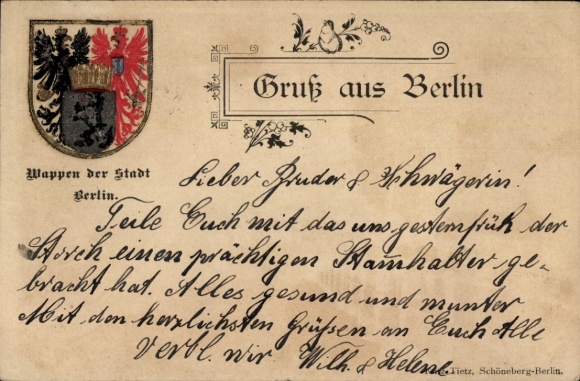 Gruß aus Berlin
Wappen der Stadt
Berlin.
Lieber Bruder & Schwägerin!
Teile Euch mit das uns gestern früh der
Storch einen prächtigen Stam̄halter ge-
bracht hat. Alles gesund und munter
Mit den herzlichsten Grüßen an Euch Alle
verbl. wir Wilh. & Helene
Tietz, Schöneberg-Berlin.